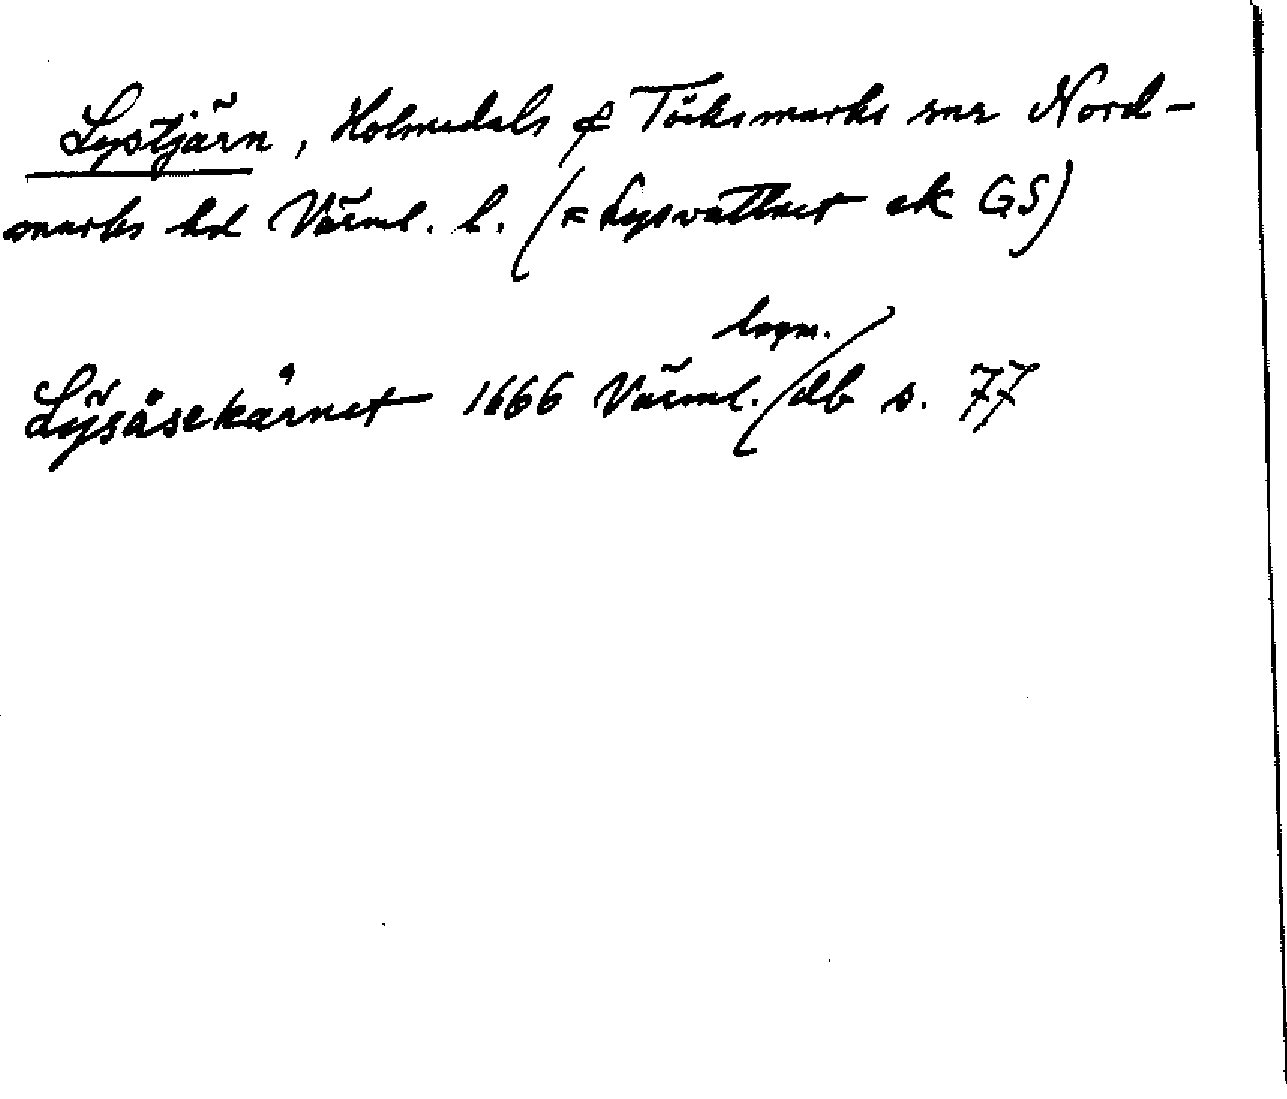 Lystjärn, Holmedals & Töcksmarks snr Nord-
marks hd Värml. l. (= Lysvattnet ek GS)
lagm.
Lÿsåsekårnet 1666 Värml. / db s. 77